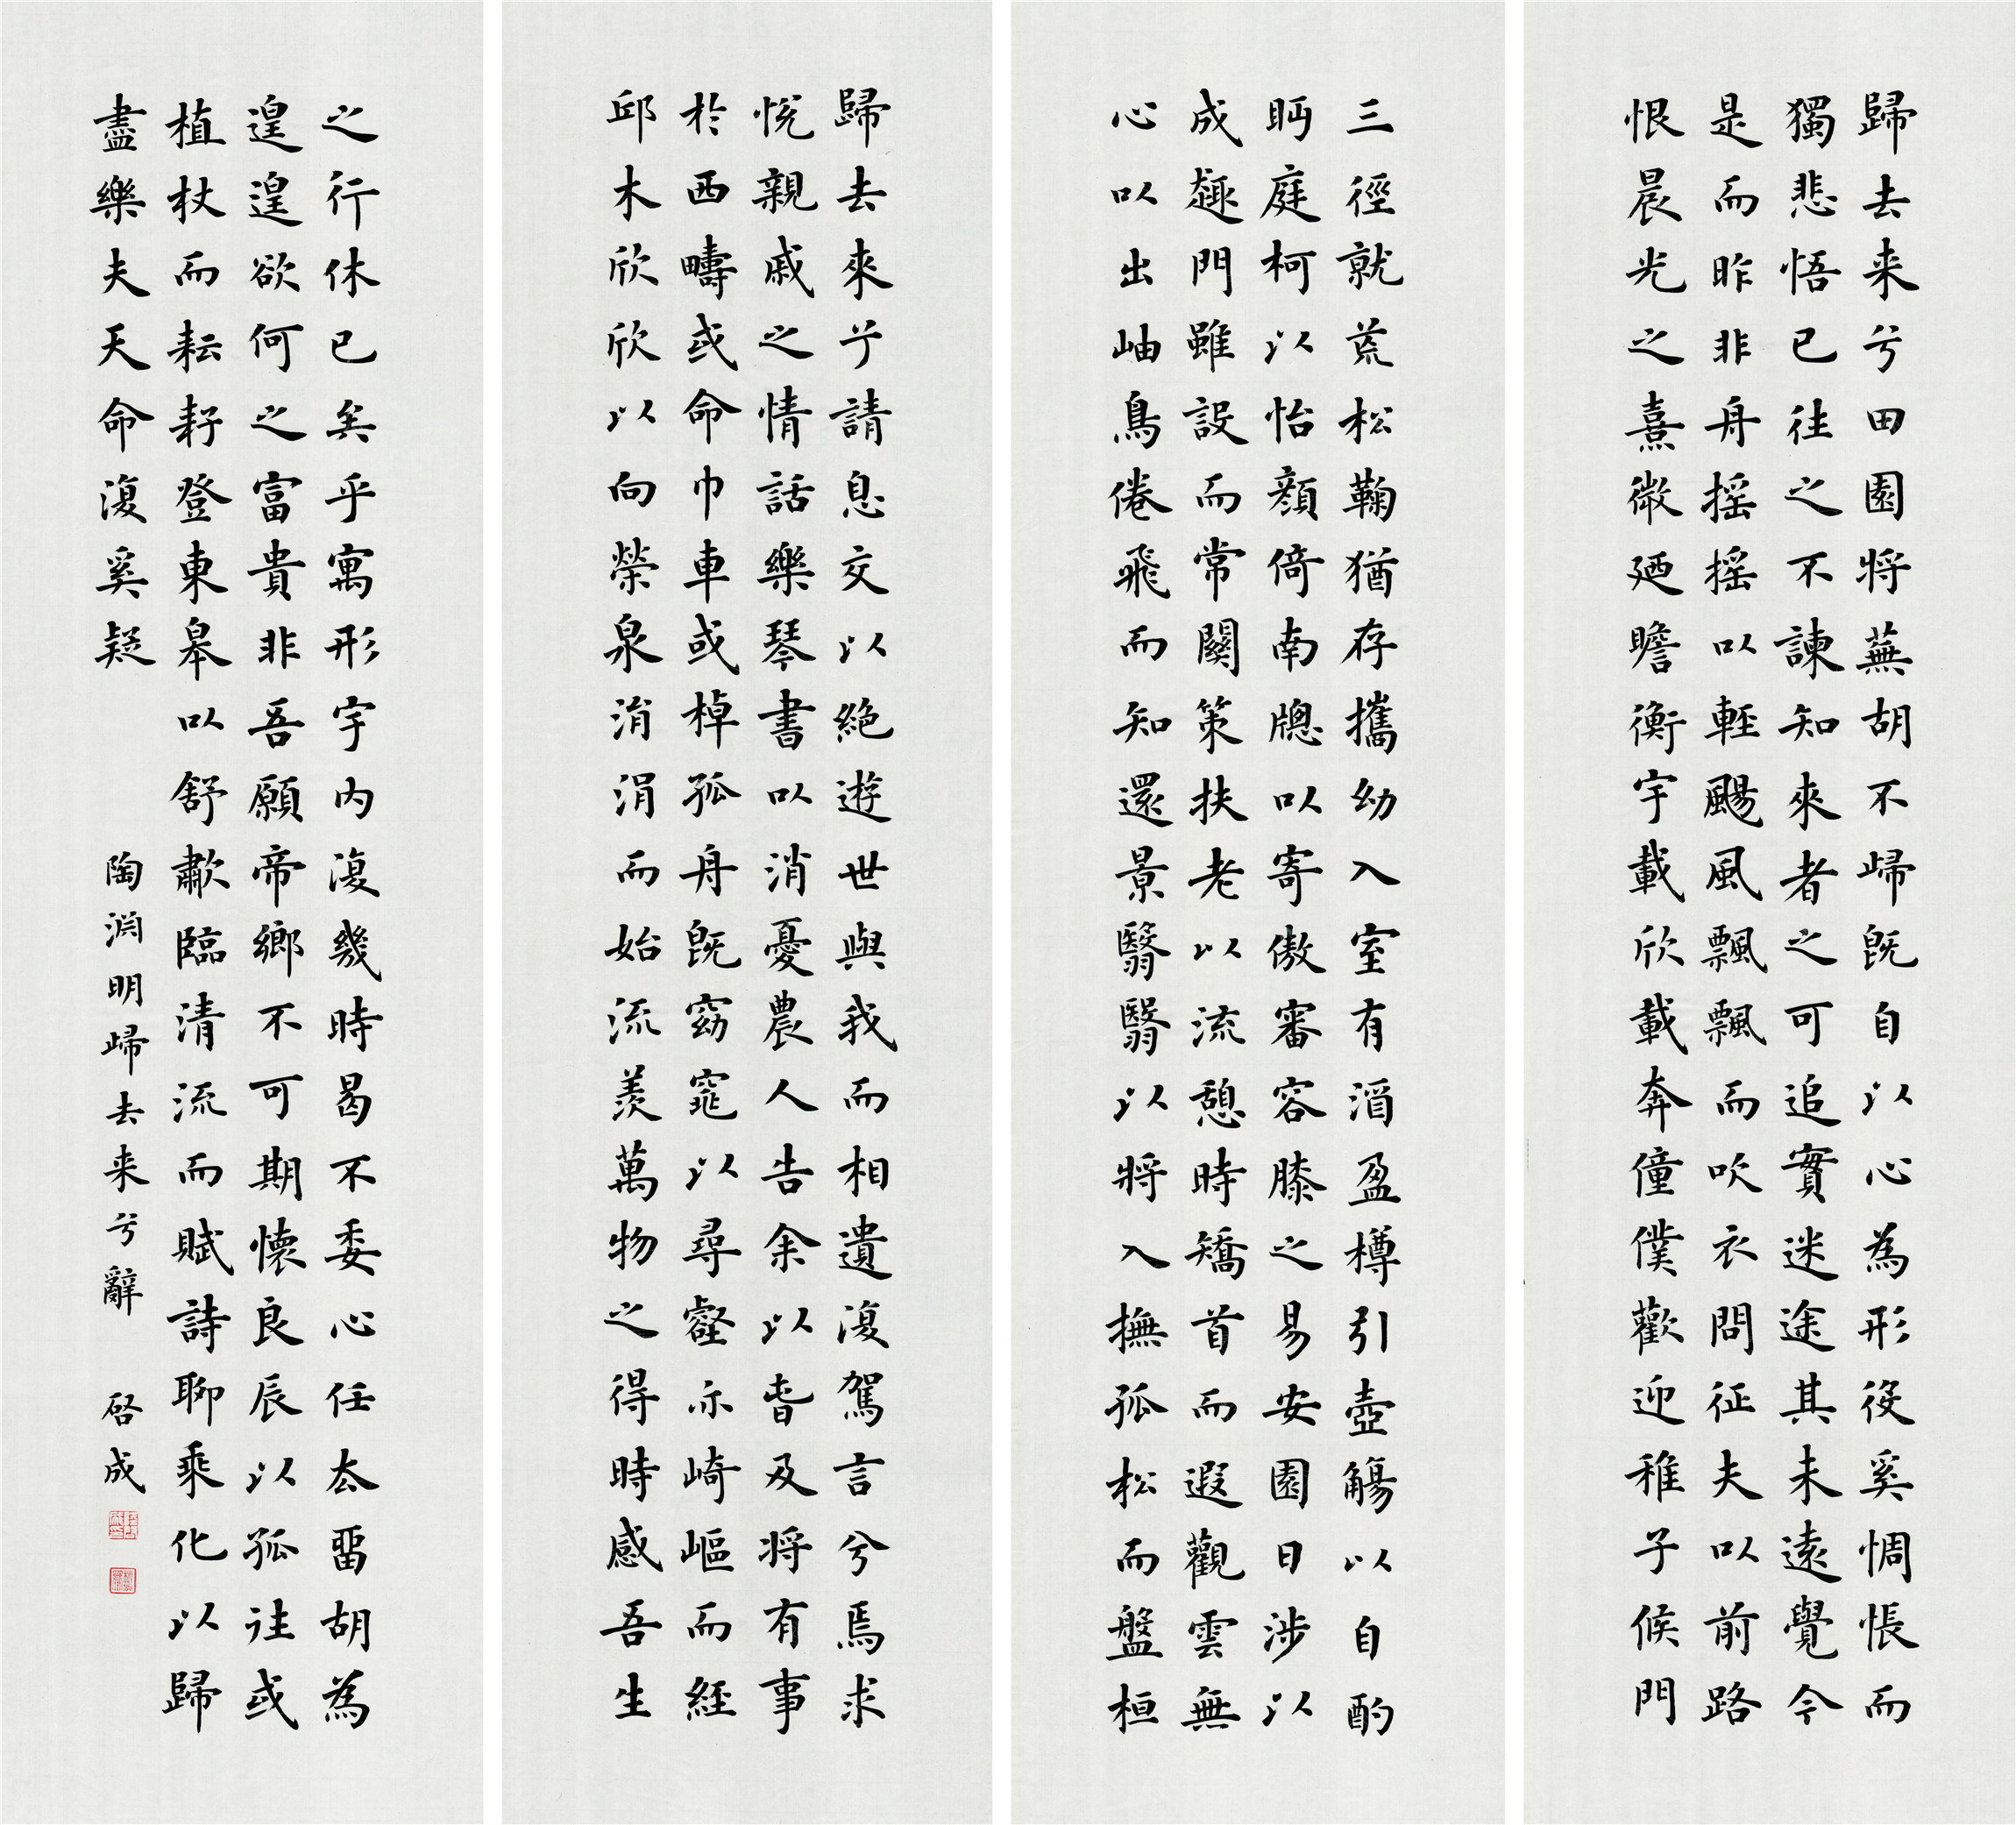 歸去来兮田園将蕪胡不歸既自以心為形役奚惆悵而
獨悲悟已往之不諫知來者之可追實迷途其未遠覺今
是而昨非舟摇摇以輕颺風飄飄而吹衣問征夫以前路
恨晨光之熹微廼瞻衡宇載欣載奔僮僕歡迎稚子候門
三徑就荒松鞠猶存攜幼入室有酒盈樽引壺觴以自酌
眄庭柯以怡顔倚南牕以寄傲審容膝之易安園日涉以
成趣門雖設而常關策扶老以流憩時矯首而遐觀雲無
心以出岫鳥倦飛而知還景翳翳以將入撫孤松而盤桓
歸去來兮請息交以絶遊世與我而相遺復駕言兮焉求
悅親戚之情話樂琴書以消憂農人告余以春及将有事
於西疇或命巾車或棹孤舟既窈窕以尋壑亦崎嶇而經
邱木欣欣以向榮泉涓涓而始流羨萬物之得時感吾生
之行休已矣乎寓形宇内復幾時曷不委心任去留胡為
遑遑欲何之富貴非吾願帝鄉不可期懷良辰以孤往或
植杖而耘耔登東皋以舒嘯臨清流而賦詩聊乘化以歸
盡樂夫天命復奚疑
陶淵明歸去来兮辭 啓成